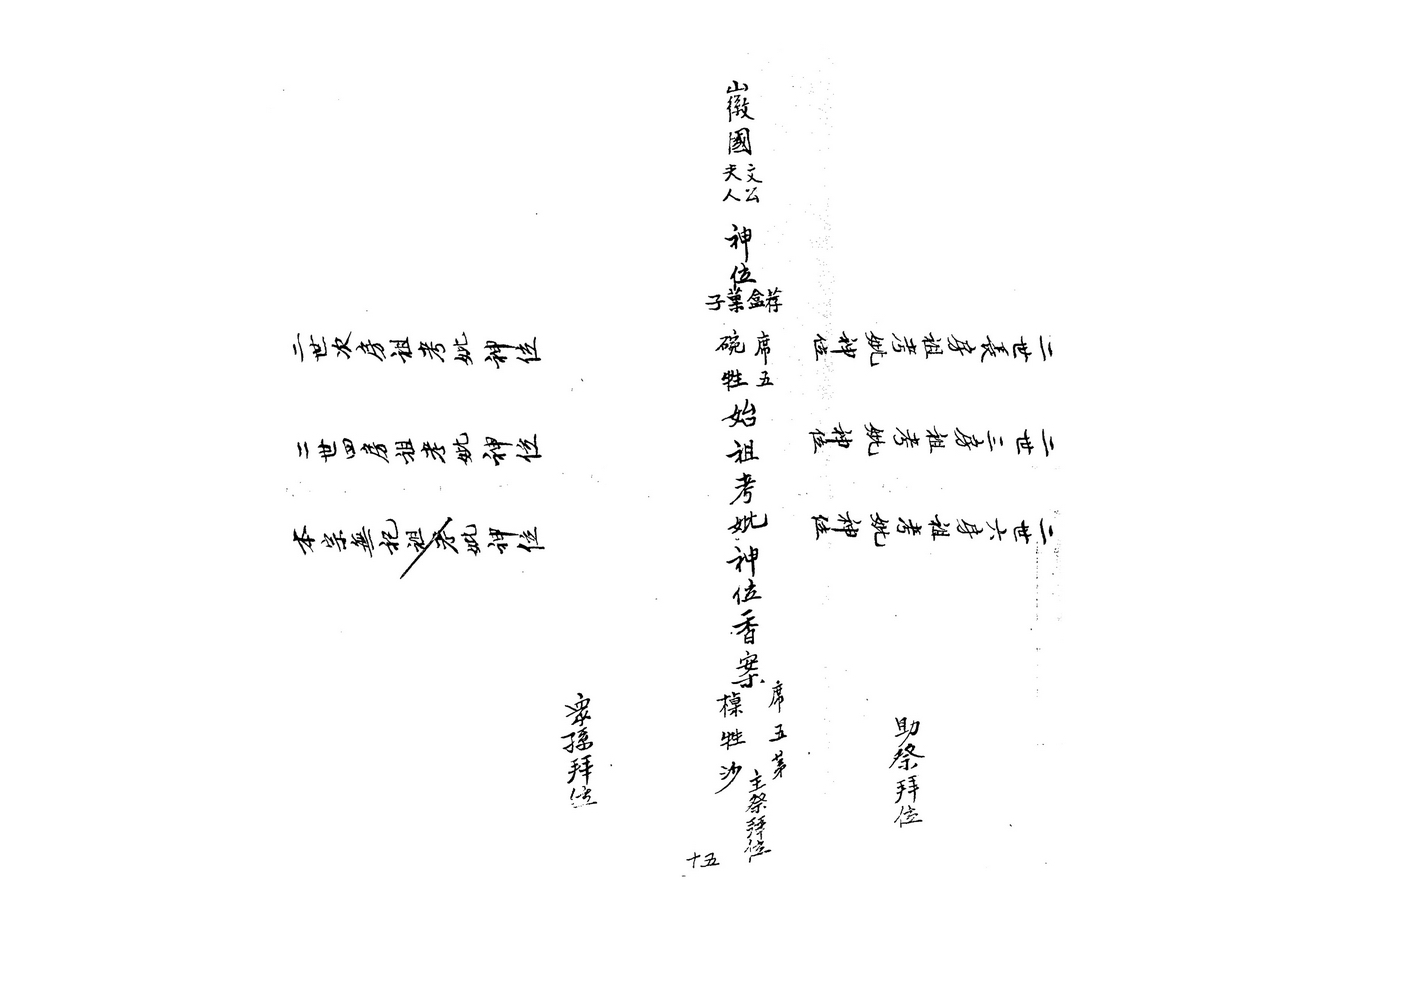 山徽國文公夫人
神位
荐盒菓子
席五
碗牲
始祖考妣神位香案
席五
棹牲沙
主祭拜位
二世長房祖考妣神位
二世三房祖考妣神位
二世六房祖考妣神位
二世次房祖考妣神位
二世四房祖考妣神位
本宗無祀祖考妣神位
助祭拜位
衆孫拜位
十五